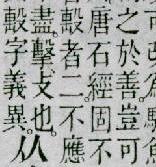 之於善豈可
唐石經固不
毄者二不應
盡。擊攴也。从
毄字義異。